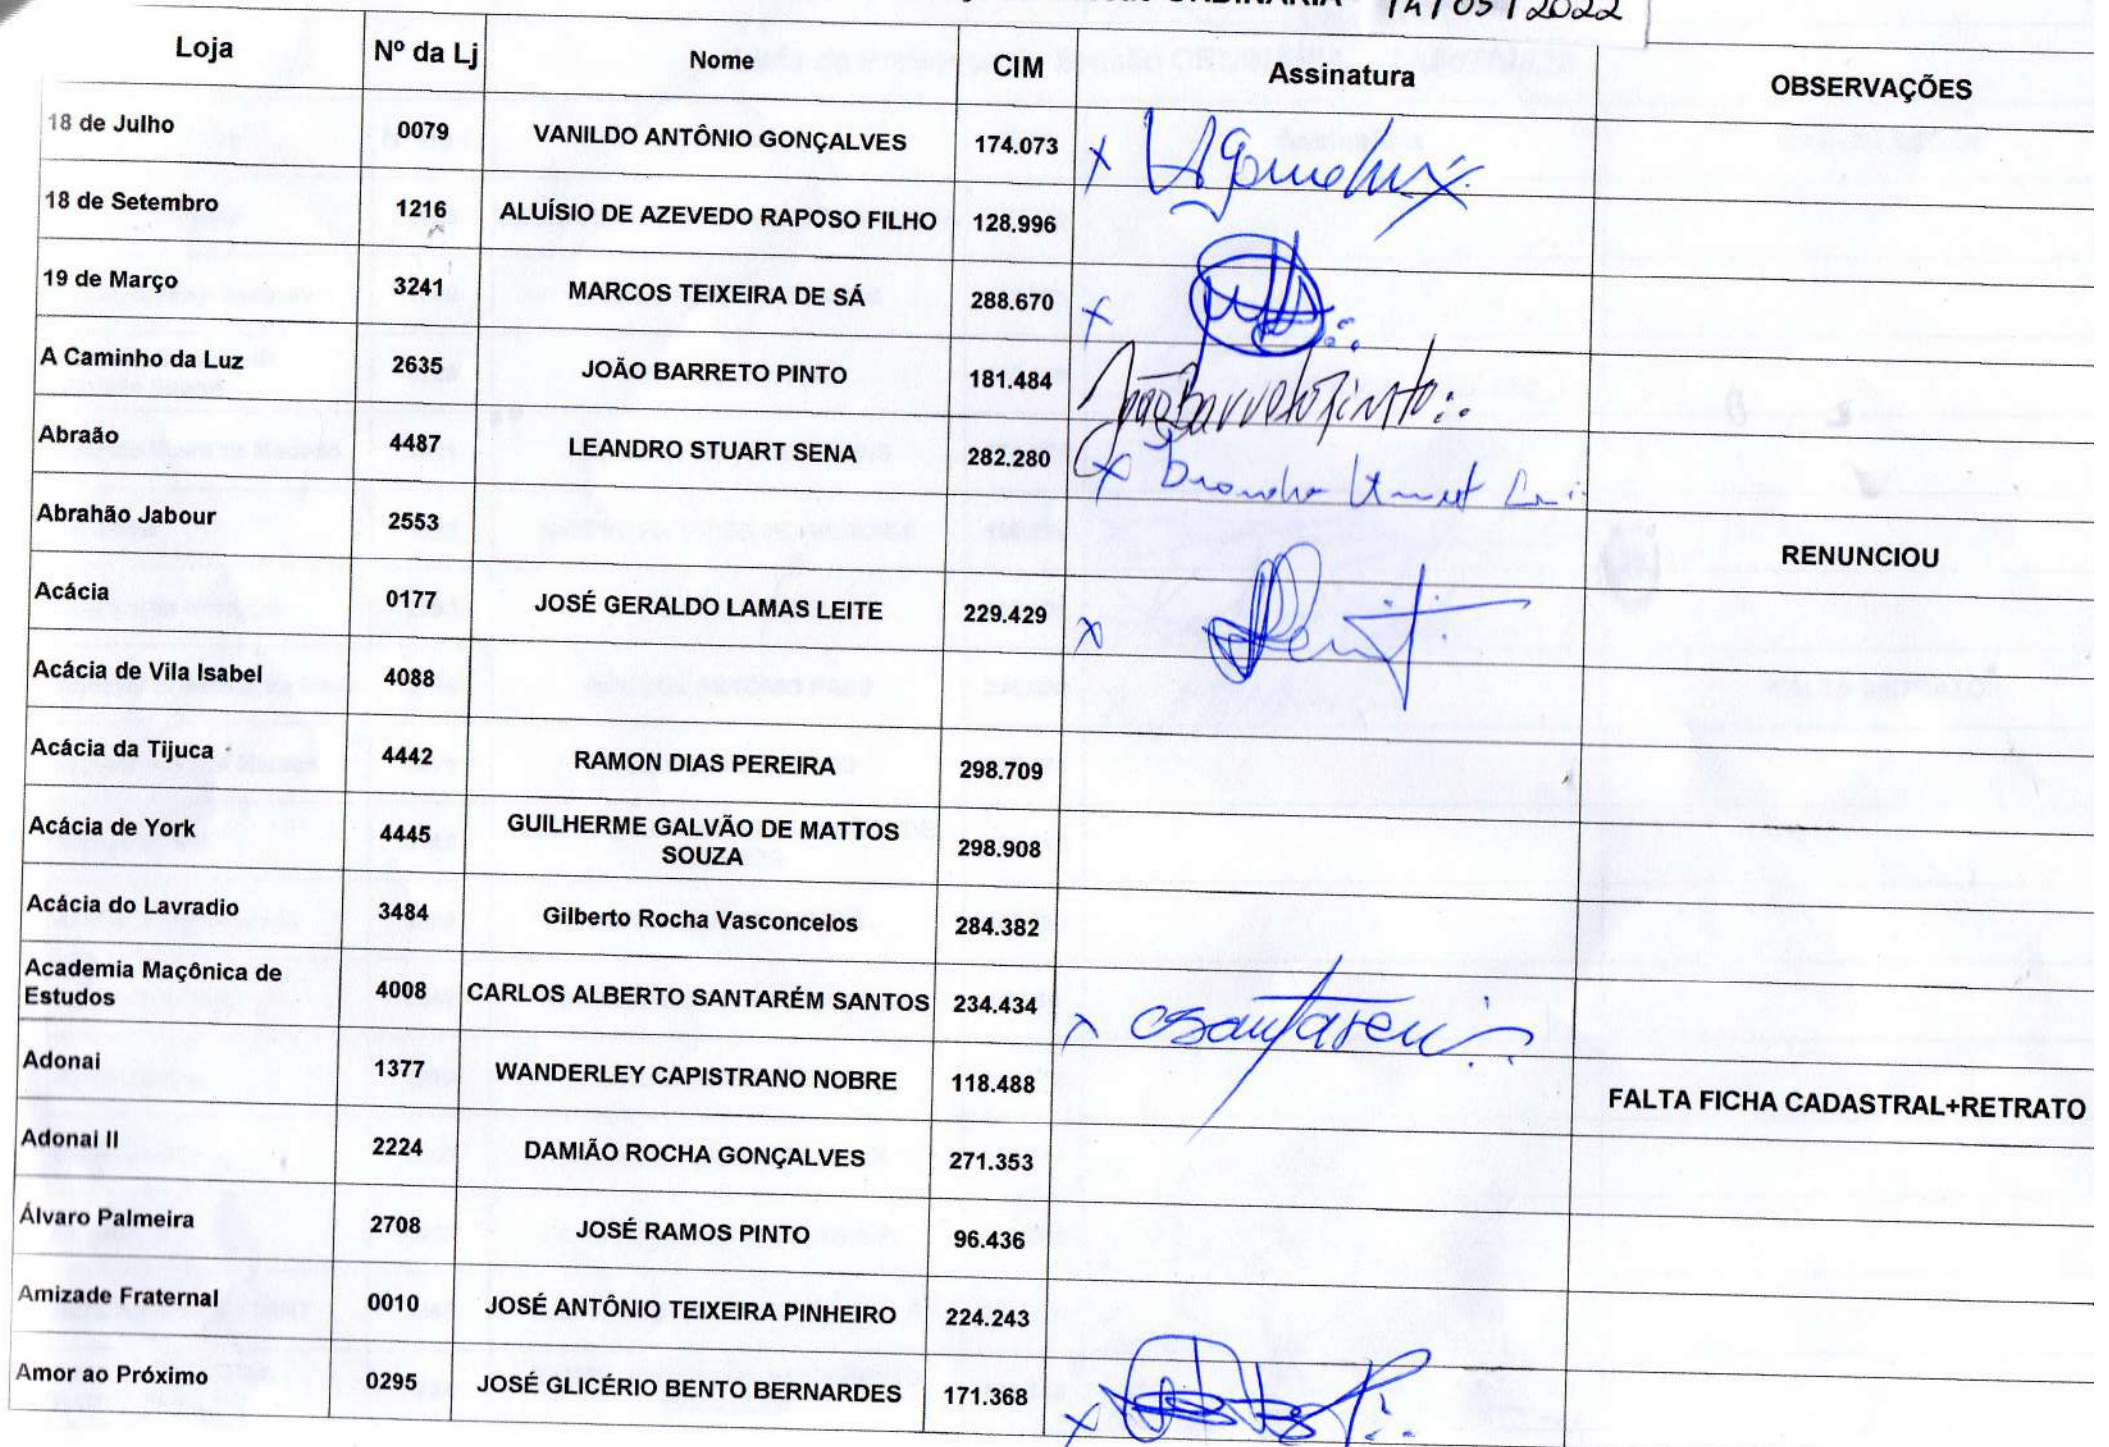 ORDINÁRIA - 14/05/2022
Loja Nº da Lj Nome CIM Assinatura OBSERVAÇÕES
18 de Julho 0079 VANILDO ANTÔNIO GONÇALVES 174.073 x
18 de Setembro 1216 ALUÍSIO DE AZEVEDO RAPOSO FILHO 128.996
19 de Março 3241 MARCOS TEIXEIRA DE SÁ 288.670 x
A Caminho da Luz 2635 JOÃO BARRETO PINTO 181.484 João Barreto Pinto
Abraão 4487 LEANDRO STUART SENA 282.280 x
Abrahão Jabour 2553 RENUNCIOU
Acácia 0177 JOSÉ GERALDO LAMAS LEITE 229.429 x
Acácia de Vila Isabel 4088
Acácia da Tijuca 4442 RAMON DIAS PEREIRA 298.709
Acácia de York 4445 GUILHERME GALVÃO DE MATTOS
SOUZA 298.908
Acácia do Lavradio 3484 Gilberto Rocha Vasconcelos 284.382
Academia Maçônica de
Estudos 4008 CARLOS ALBERTO SANTARÉM SANTOS 234.434 x
Adonai 1377 WANDERLEY CAPISTRANO NOBRE 118.488 FALTA FICHA CADASTRAL+RETRATO
Adonai II 2224 DAMIÃO ROCHA GONÇALVES 271.353
Álvaro Palmeira 2708 JOSÉ RAMOS PINTO 96.436
Amizade Fraternal 0010 JOSÉ ANTÔNIO TEIXEIRA PINHEIRO 224.243
Amor ao Próximo 0295 JOSÉ GLICÉRIO BENTO BERNARDES 171.368 x